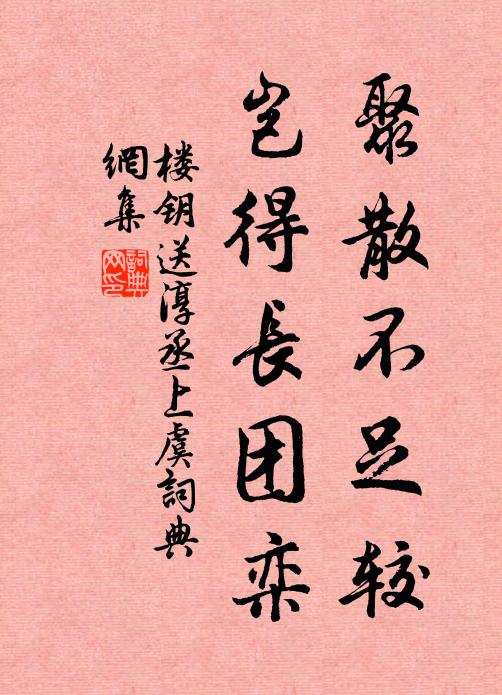 聚散不足较
岂得長团栾
楼钥送淳丞上虞詞典
網集
詞典
网印